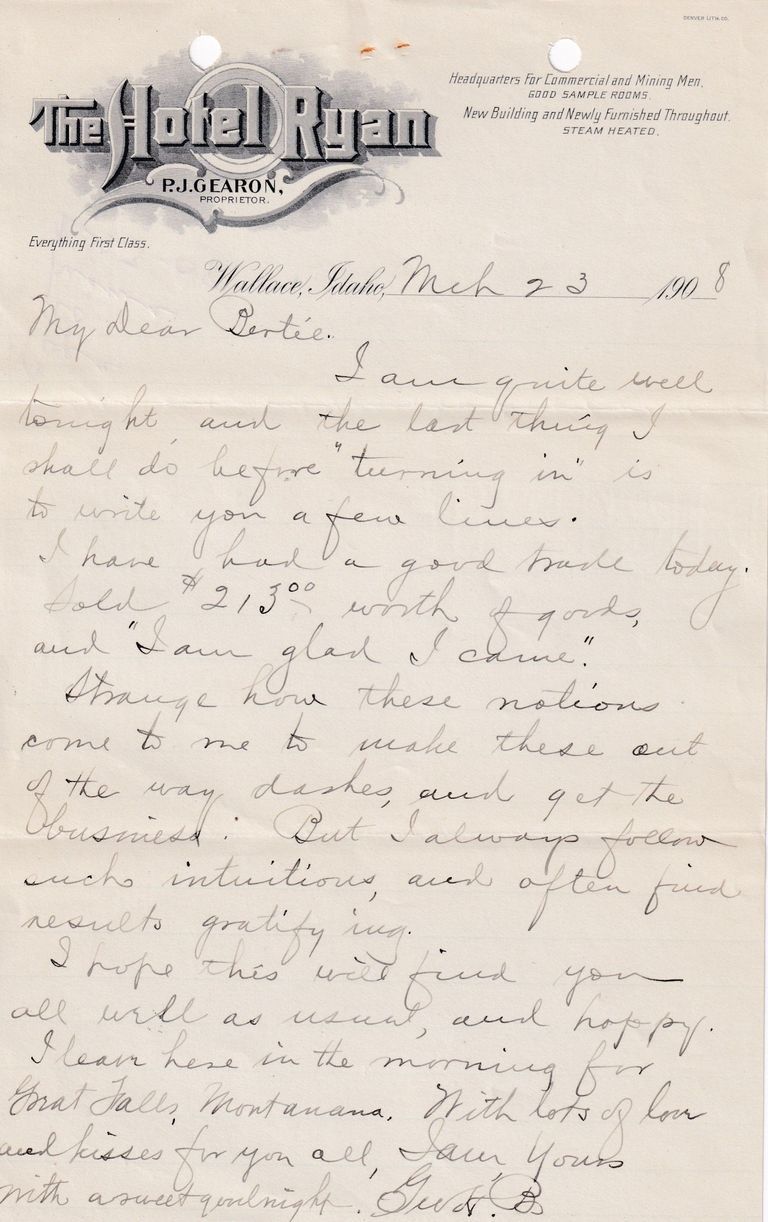 DENVER LITH. CO.
The Hotel Ryan
P.J. GEARON,
PROPRIETOR.
Headquarters For Commercial and Mining Men.
GOOD SAMPLE ROOMS.
New Building and Newly Furnished Throughout.
STEAM HEATED.
Everything First Class.
Wallace, Idaho, Mch 23 1908
My Dear Bertie.
I am quite well
tonight, and the last thing I
shall do before "turning in" is
to write you a few lines.
I have had a good trade today.
Sold $213.00 worth of goods,
and "I am glad I came".
Strange how these notions
come to me to make these out
of the way dashes, and get the
business. But I always follow
such intuitions, and often find
results gratifying.
I hope this will find you
all well as usual, and happy.
I leave here in the morning for
Great Falls, Montanana. With lots of love
and kisses for you all, I am, Yours
with a sweet goodnight. B.